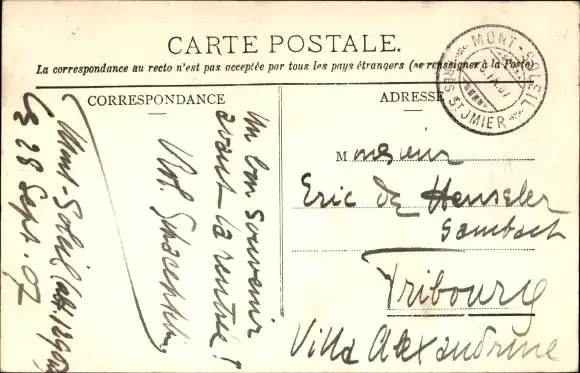 CARTE POSTALE.
La correspondance au recto n'est pas acceptée par tous les pays étrangers (se renseigner à la Poste)
MONT-SOLEIL
PRÈS ST IMIER
CORRESPONDANCE
ADRESSE
Mont-Soleil
le 28 Sept. 07
Un bon souvenir
avant la rentrée!
Monsieur
Eric de
Fribourg
Villa Alexandrine